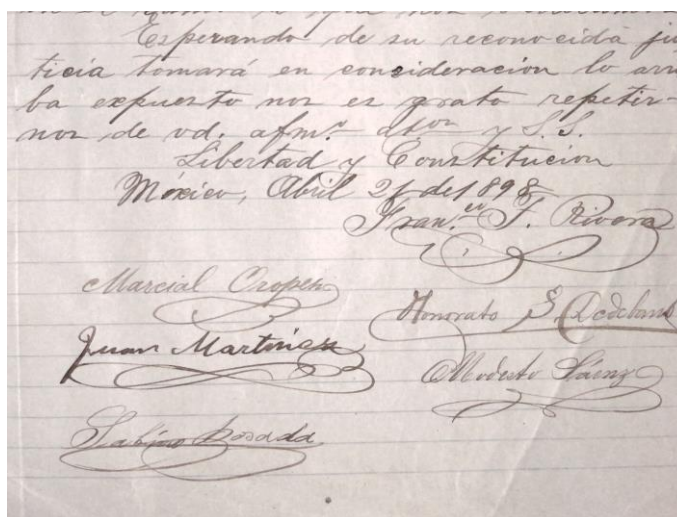 Esperando de su reconocida jus
ticia tomará en consideración lo arri
ba expuesto nos es grato repetir-
nos de vd. afmos. attos y S.S.
Libertad y Constitución
México, Abril 21 de 1898
Fran.co F. Rivera
Marcial Oropeza
Honorato S.
Juan Martinez
Modesto Saenz
Sabino Posada